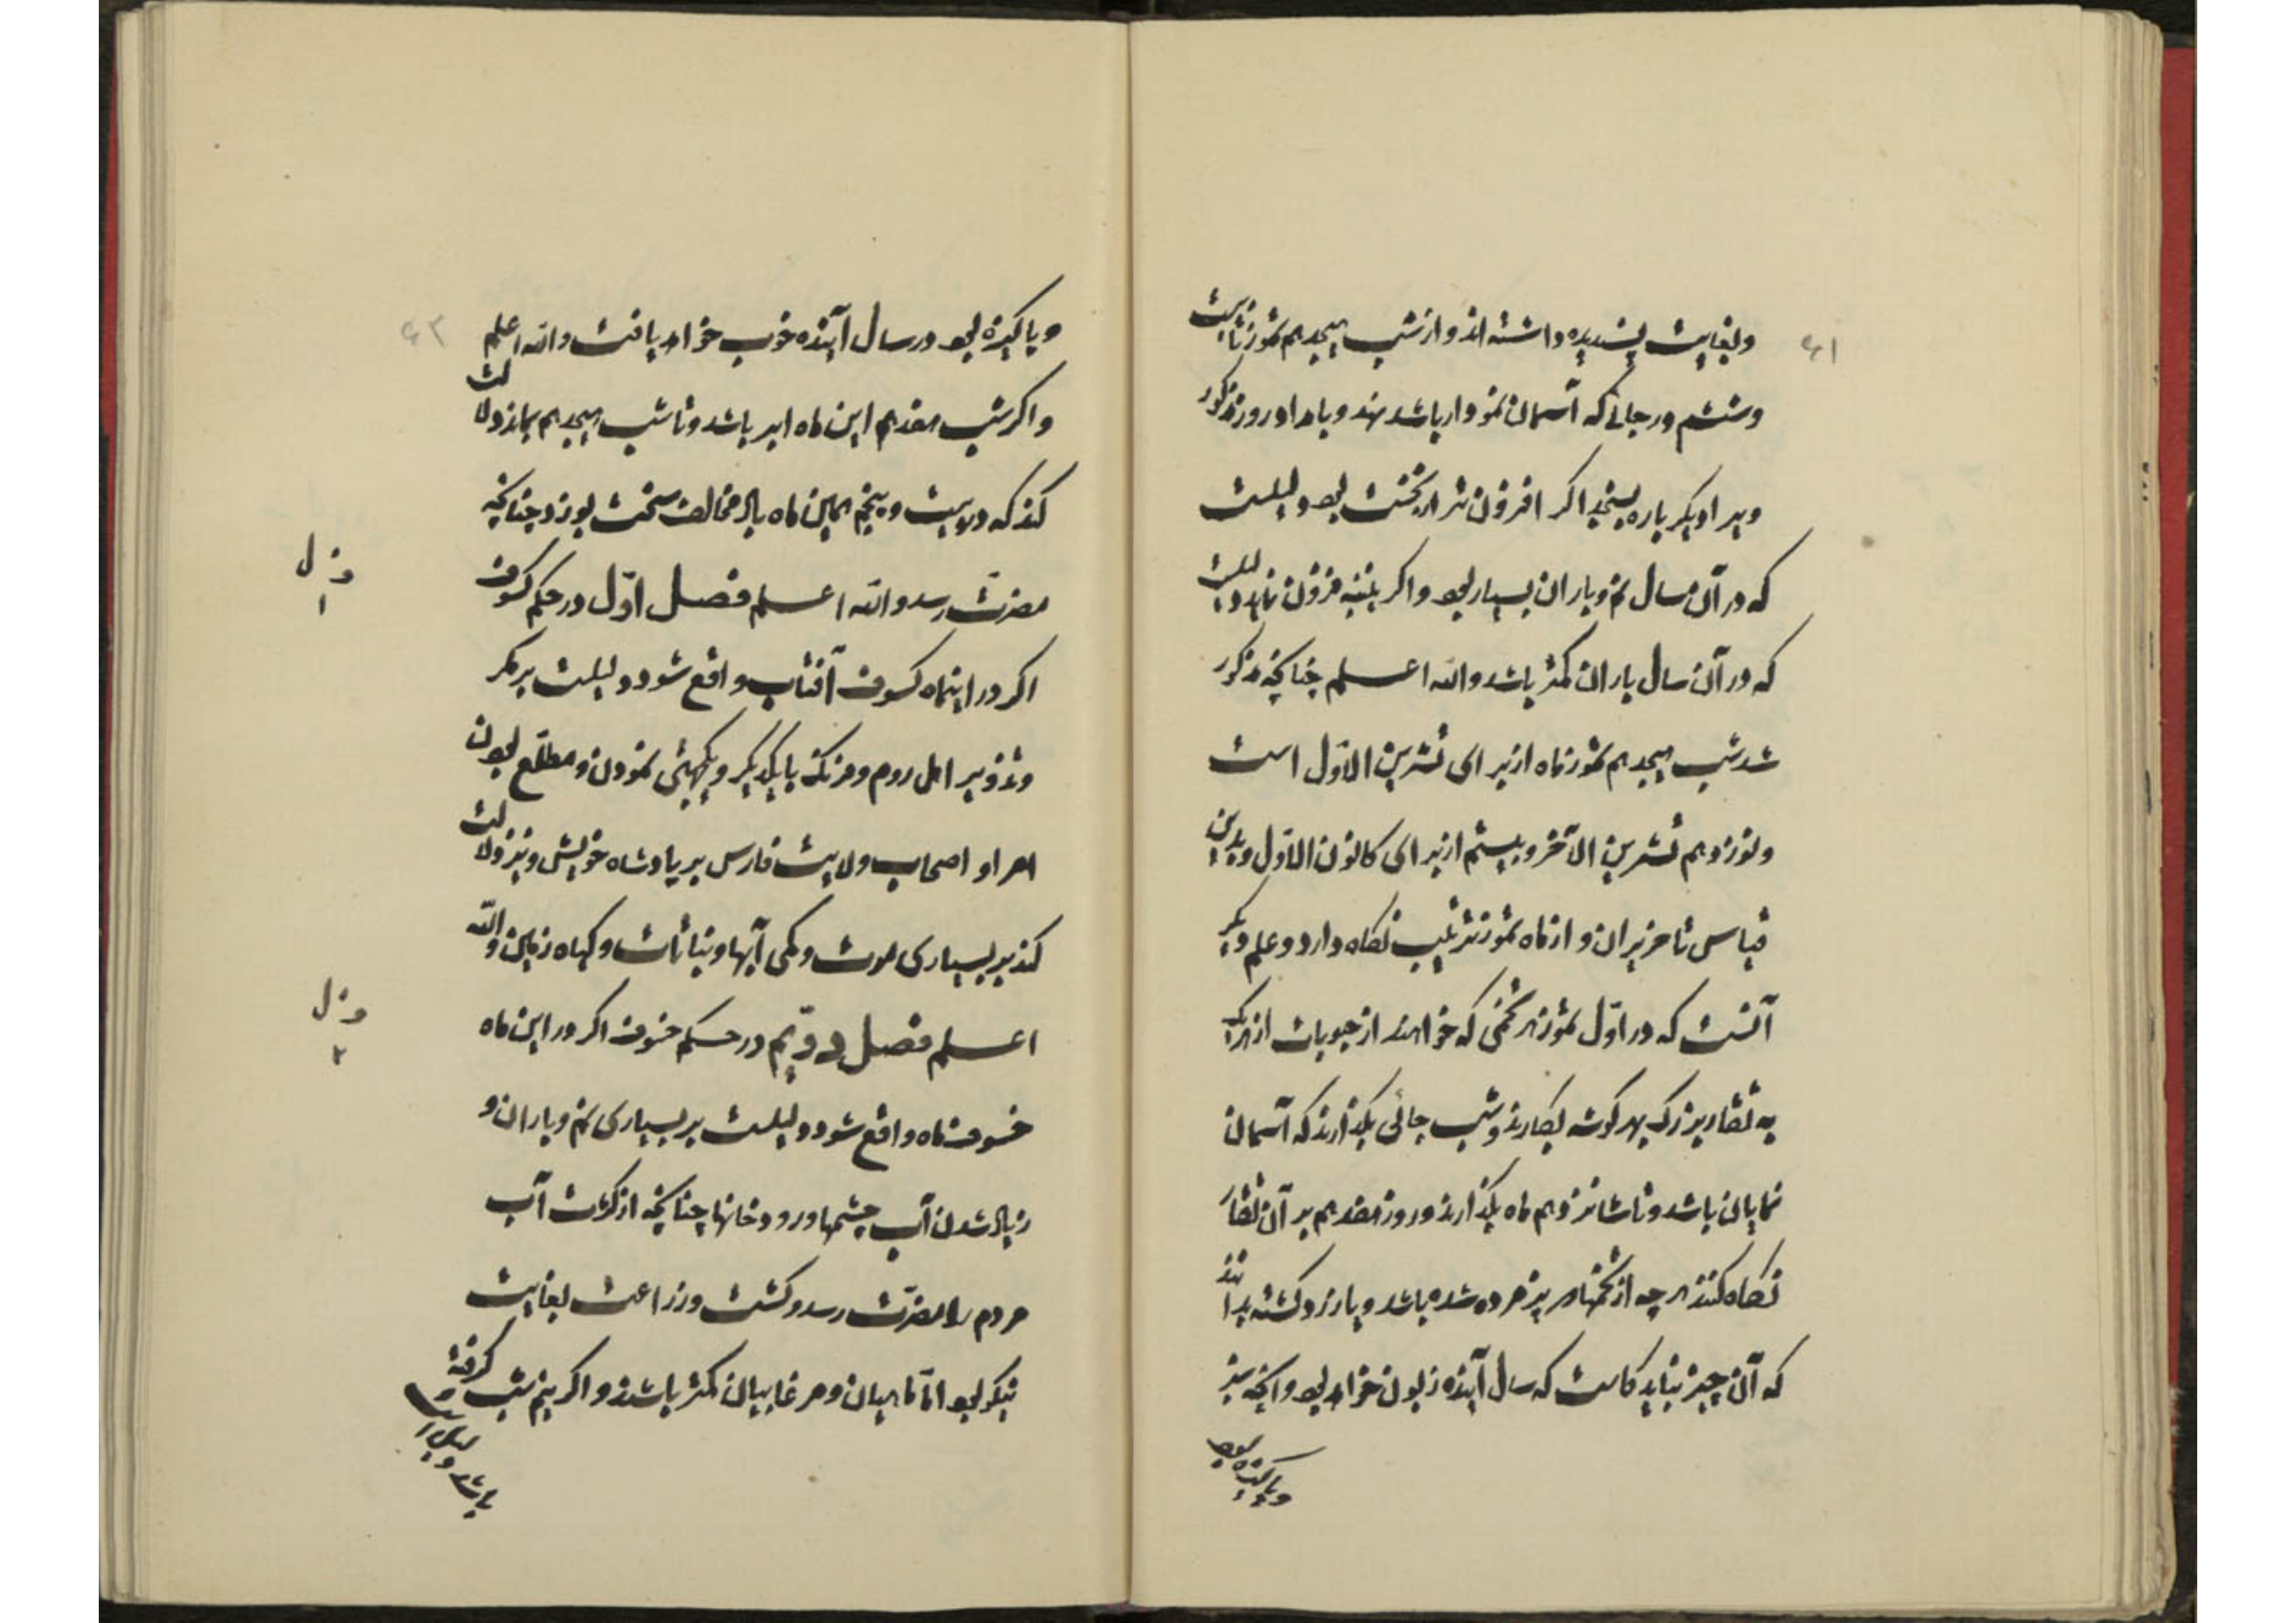 ۶۱
وبغایت پسندیده داشته اند و از شب هیجدهم تموز تا بیست
وششم در جائی که آسمان نمودار باشد نهند و بامداد روز مذکور
دیگر باره بسنجد اگر افزون تر از نخست بود دلیلست
که در آن سال نم و باران بسیار بود و اگر فزون نیاید دلیلست
که در آن سال باران کمتر باشد والله اعلم چنانچه مذکور
شد شب هیجدهم تموز ماه از برای تشرین الاول است
ونوزدهم تشرین الآخر وبیستم از برای کانون الاول وبدین
قیاس تا حزیران و از ماه تموز ترتیب نگاه دارد و علم دیگر
آنست که در اول تموز هر تخمی که خواهند از حبوبات از هر یک
به تغار بزرگ بهر گوشه بکارند وشب جائی بگذارند که آسمان
نمایان باشد وتا شانزدهم ماه بگذارند و روز هفدهم بر آن تغار
نگاه کنند هر چه از تخمها پژمرده شده باشد ویا زرد گشته بدانند
که آن چیز نباید کاشت که سال آینده زبون خواهد بود وآنچه سبز
وپاکیزه بود
۶۲
وپاکیزه بود در سال آینده خوب خواهد یافت والله اعلم
واگر شب هفدهم این ماه ابر باشد وتا شب هیجدهم بماند دلالت
کند که در بیست وپنجم همین ماه باد مخالف سخت بوزد چنانچه
مضرت رسد والله اعلم فصل اول در حکم کسوف
اگر در اینماه کسوف آفتاب واقع شود دلیلست بر مکر
وتزویر اهل روم وفرنگ با یکدیگر ویکجهتی نمودن ومطلع بودن
امرا و اصحاب ولایت فارس بر پادشاه خویش ونیز دلالت
کند بر بسیاری موت وکمی آبها ونباتات وگیاه زمین والله
اعلم فصل دویم در حکم خسوف اگر در این ماه
خسوف ماه واقع شود دلیلست بر بسیاری نم وباران و
زیاد شدن آب چشمها ورودخانها چنانچه از کثرت آب
مردم را مضرت رسد وکشت وزراعت بغایت
نیکو بود اما ماهیان ومرغابیان کمتر باشند و اگر نیم شب گرفته